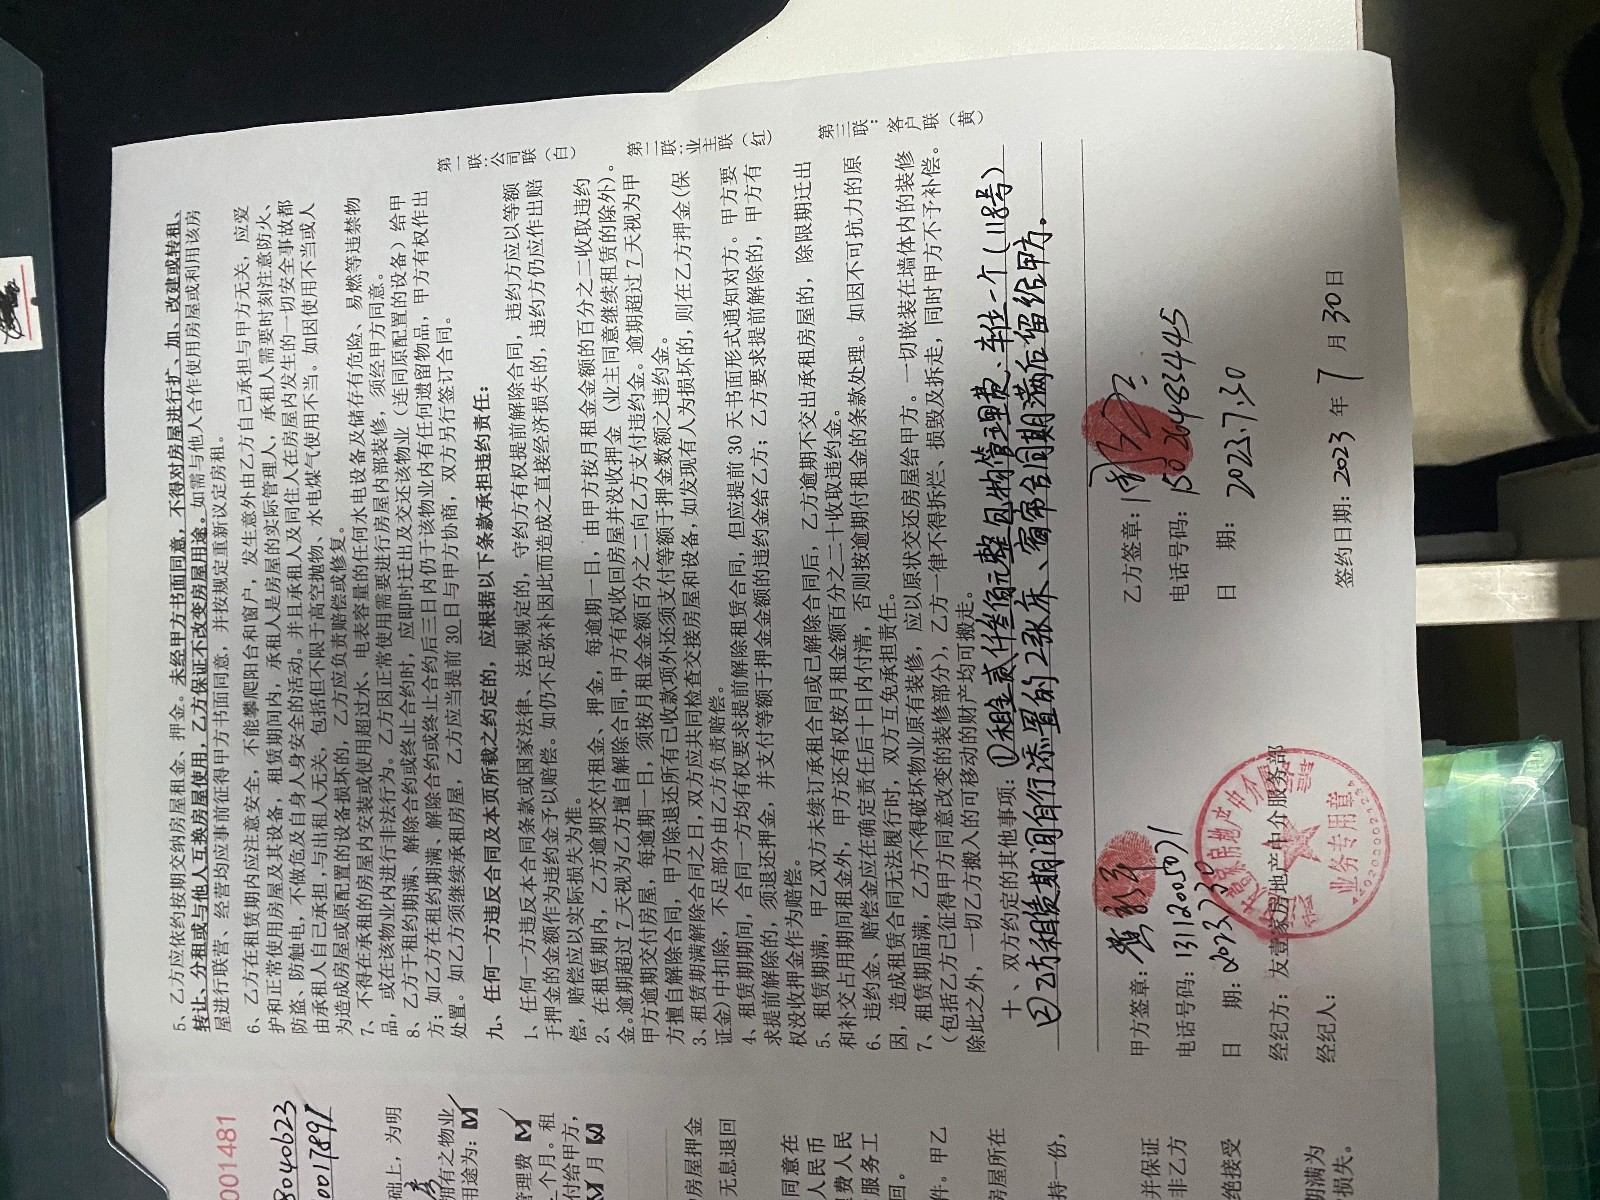 5、乙方应依约按期交纳房屋租金、押金。未经甲方书面同意，不得对房屋进行扩、加、改建或转租、
转让、分租或与他人互换房屋使用，乙方保证不改变房屋用途。如需与他人合作使用房屋或利用该房
屋进行联营、经营均应事前征得甲方书面同意，并按规定重新议定房租。
6、乙方在租赁期内应注意安全，不能攀爬阳台和窗户，发生意外由乙方自己承担与甲方无关，应爱
护和正常使用房屋及其设备，租赁期间内，承租人是房屋的实际管理人，承租人需要时刻注意防火、
防盗、防触电，不做危及自身人身安全的活动。并且承租人及同住人在房屋内发生的一切安全事故都
由承租人自己承担，与出租人无关，包括但不限于高空抛物、水电煤气使用不当。如因使用不当或人
为造成房屋或原配置的设备损坏的，乙方应负责赔偿或修复。
7、不得在承租的房屋内安装或使用超过水、电表容量的任何水电设备及储存有危险、易燃等违禁物
品，或在该物业内进行非法行为。乙方因正常使用需要进行房屋内部装修，须经甲方同意。
8、乙方于租约期满、解除合约或终止合约时，应即时迁出及交还该物业（连同原配置的设备）给甲
方；如乙方在租约期满、解除合约或终止合约后三日内仍于该物业内有任何遗留物品，甲方有权作出
处置。如乙方须继续承租房屋，乙方应当提前30日与甲方协商，双方另行签订合同。
九、任何一方违反合同及本页所载之约定的，应根据以下条款承担违约责任：
1、任何一方违反本合同条款或国家法律、法规规定的，守约方有权提前解除合同，违约方应以等额
于押金的金额作为违约金予以赔偿。如仍不足弥补因此而造成之直接经济损失的，违约方仍应作出赔
偿，赔偿应以实际损失为准。
2、在租赁期内，乙方逾期交付租金、押金，每逾期一日，由甲方按月租金金额的百分之二收取违约
金。逾期超过7天视为乙方擅自解除合同，甲方有权收回房屋并没收押金（业主同意继续租赁的除外）。
甲方逾期交付房屋，每逾期一日，须按月租金金额百分之二向乙方支付违约金。逾期超过7天视为甲
方擅自解除合同，甲方除退还所有已收款项外还须支付等额于押金数额之违约金。
3、租赁期满解除合同之日，双方应共同检查交接房屋和设备，如发现有人为损坏的，则在乙方押金（保
证金)中扣除，不足部分由乙方负责赔偿。
4、租赁期期间，合同一方均有权要求提前解除租赁合同，但应提前30天书面形式通知对方。甲方要
求提前解除的，须退还押金，并支付等额于押金金额的违约金给乙方；乙方要求提前解除的，甲方有
权没收押金作为赔偿。
5、租赁期满，甲乙双方未续订承租合同或已解除合同后，乙方逾期不交出承租房屋的，除限期迁出
和补交占用期间租金外，甲方还有权按月租金额百分之二十收取违约金。
6、违约金、赔偿金应在确定责任后十日内付清，否则按逾期付租金的条款处理。如因不可抗力的原
因，造成租赁合同无法履行时，双方互免承担责任。
7、租赁期届满，乙方不得破坏物业原有装修，应以原状交还房屋给甲方。一切嵌装在墙体内的装修
（包括乙方已征得甲方同意改变的装修部分），乙方一律不得拆烂、损毁及拆走，同时甲方不予补偿。
除此之外，一切乙方搬入的可移动的财产均可搬走。
十、双方约定的其他事项：①租金贰仟叁佰元整包物管理费、车位一个(118号)
②乙方租赁期间自行添置的2张床、窗帘合同期满后留给甲方。
甲方签章：
电话号码：13112005071
日 期：2023.7.30
经纪方：友壹家房地产中介服务部
经纪人：
乙方签章：
电话号码：15026483445
日 期：2023.7.30
签约日期：2023 年 7 月 30 日
第一联：公司联（白）
第二联：业主联（红）
第三联：客户联（黄）
业务专用章
001481
8040623
0017891
础上，为明
拥有之物业
用途为：
管理费
个月。租
付给甲方，
月
房屋押金
无息退回
同意在
人民币
费人民
服务工
回。
件。甲乙
房屋所在
持一份，
并保证
非乙方
绝接受
期满为
损失。